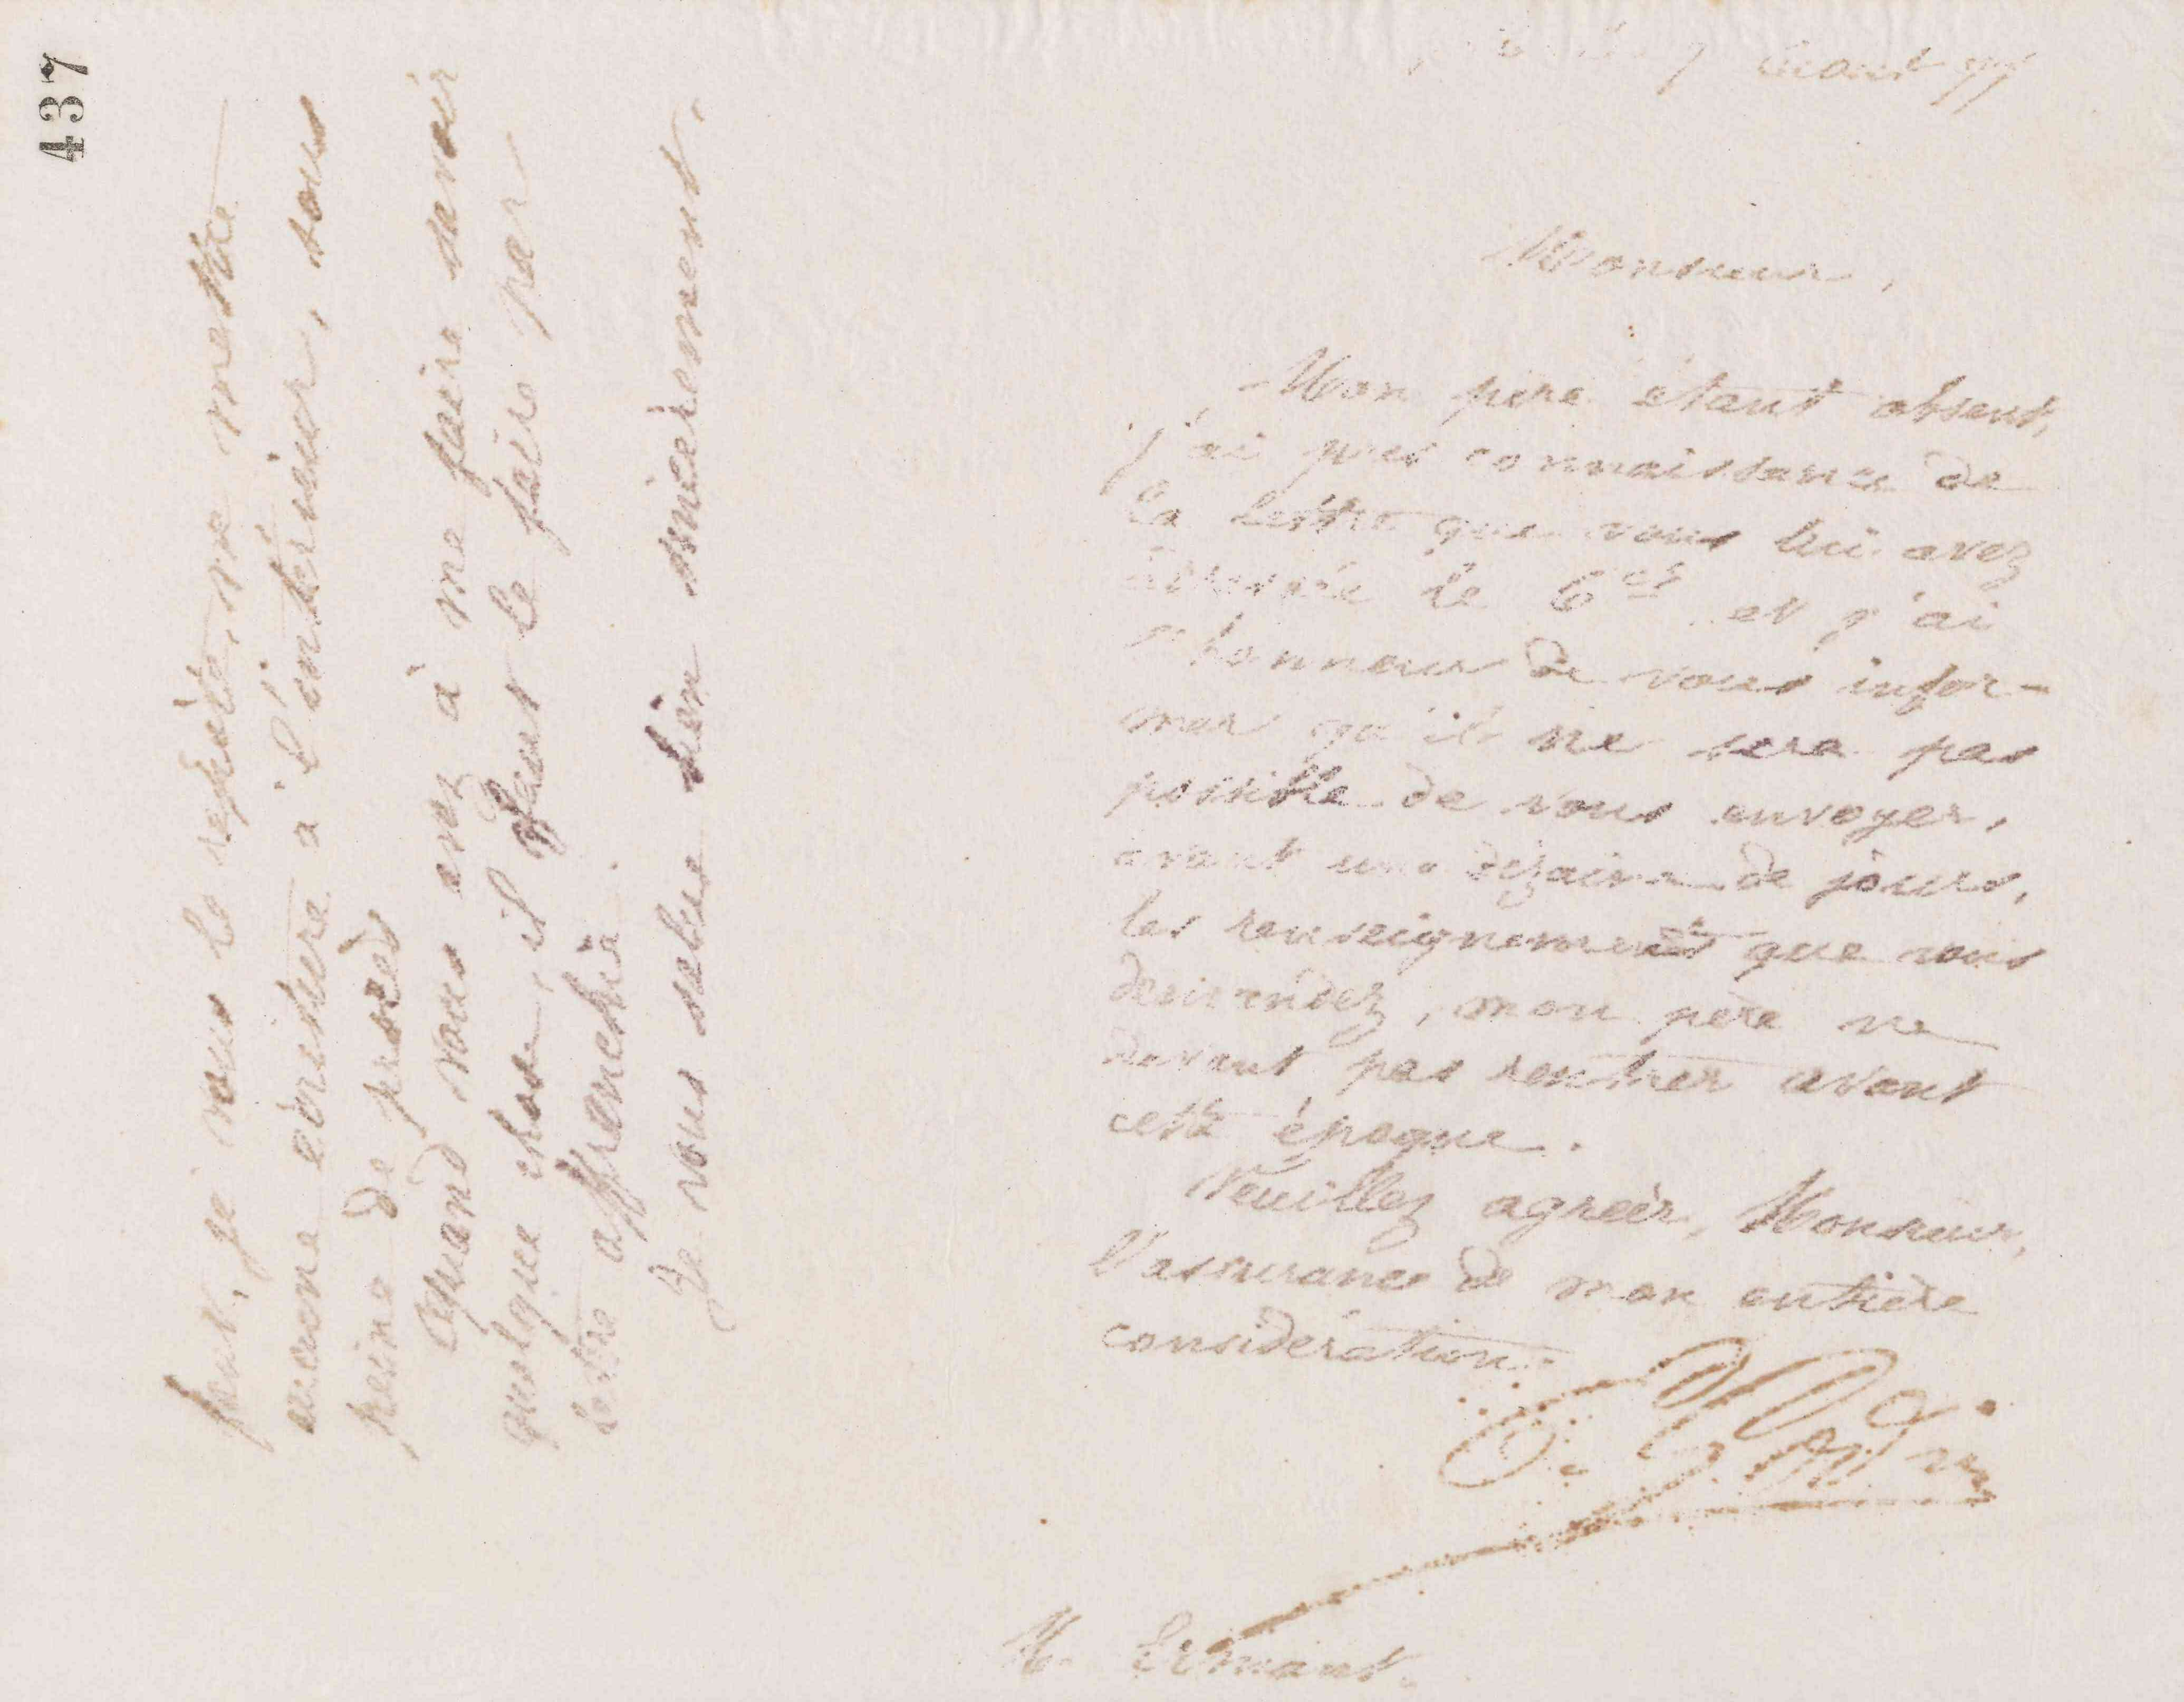 437
faut, je vous le répète, ne mettre
aucune écriture à l'intérieur, sous
peine de procès
Quand vous avez à me faire savoir
quelque chose, il faut le faire par
lettre affranchie.
Je vous salue bien sincèrement.
7 Aout 77
Monsieur,
Mon père étant absent,
j'ai pris connaissance de
la lettre que vous lui avez
adressée le 6 ct et j'ai
l'honneur de vous infor-
mer qu'il ne sera pas
possible de vous envoyer,
avant une dizaine de jours,
les renseignements que vous
demandez, mon père ne
devant pas rentrer avant
cette époque.
Veuillez agréer, Monsieur,
l'assurance de mon entière
considération.
M. Ermant.